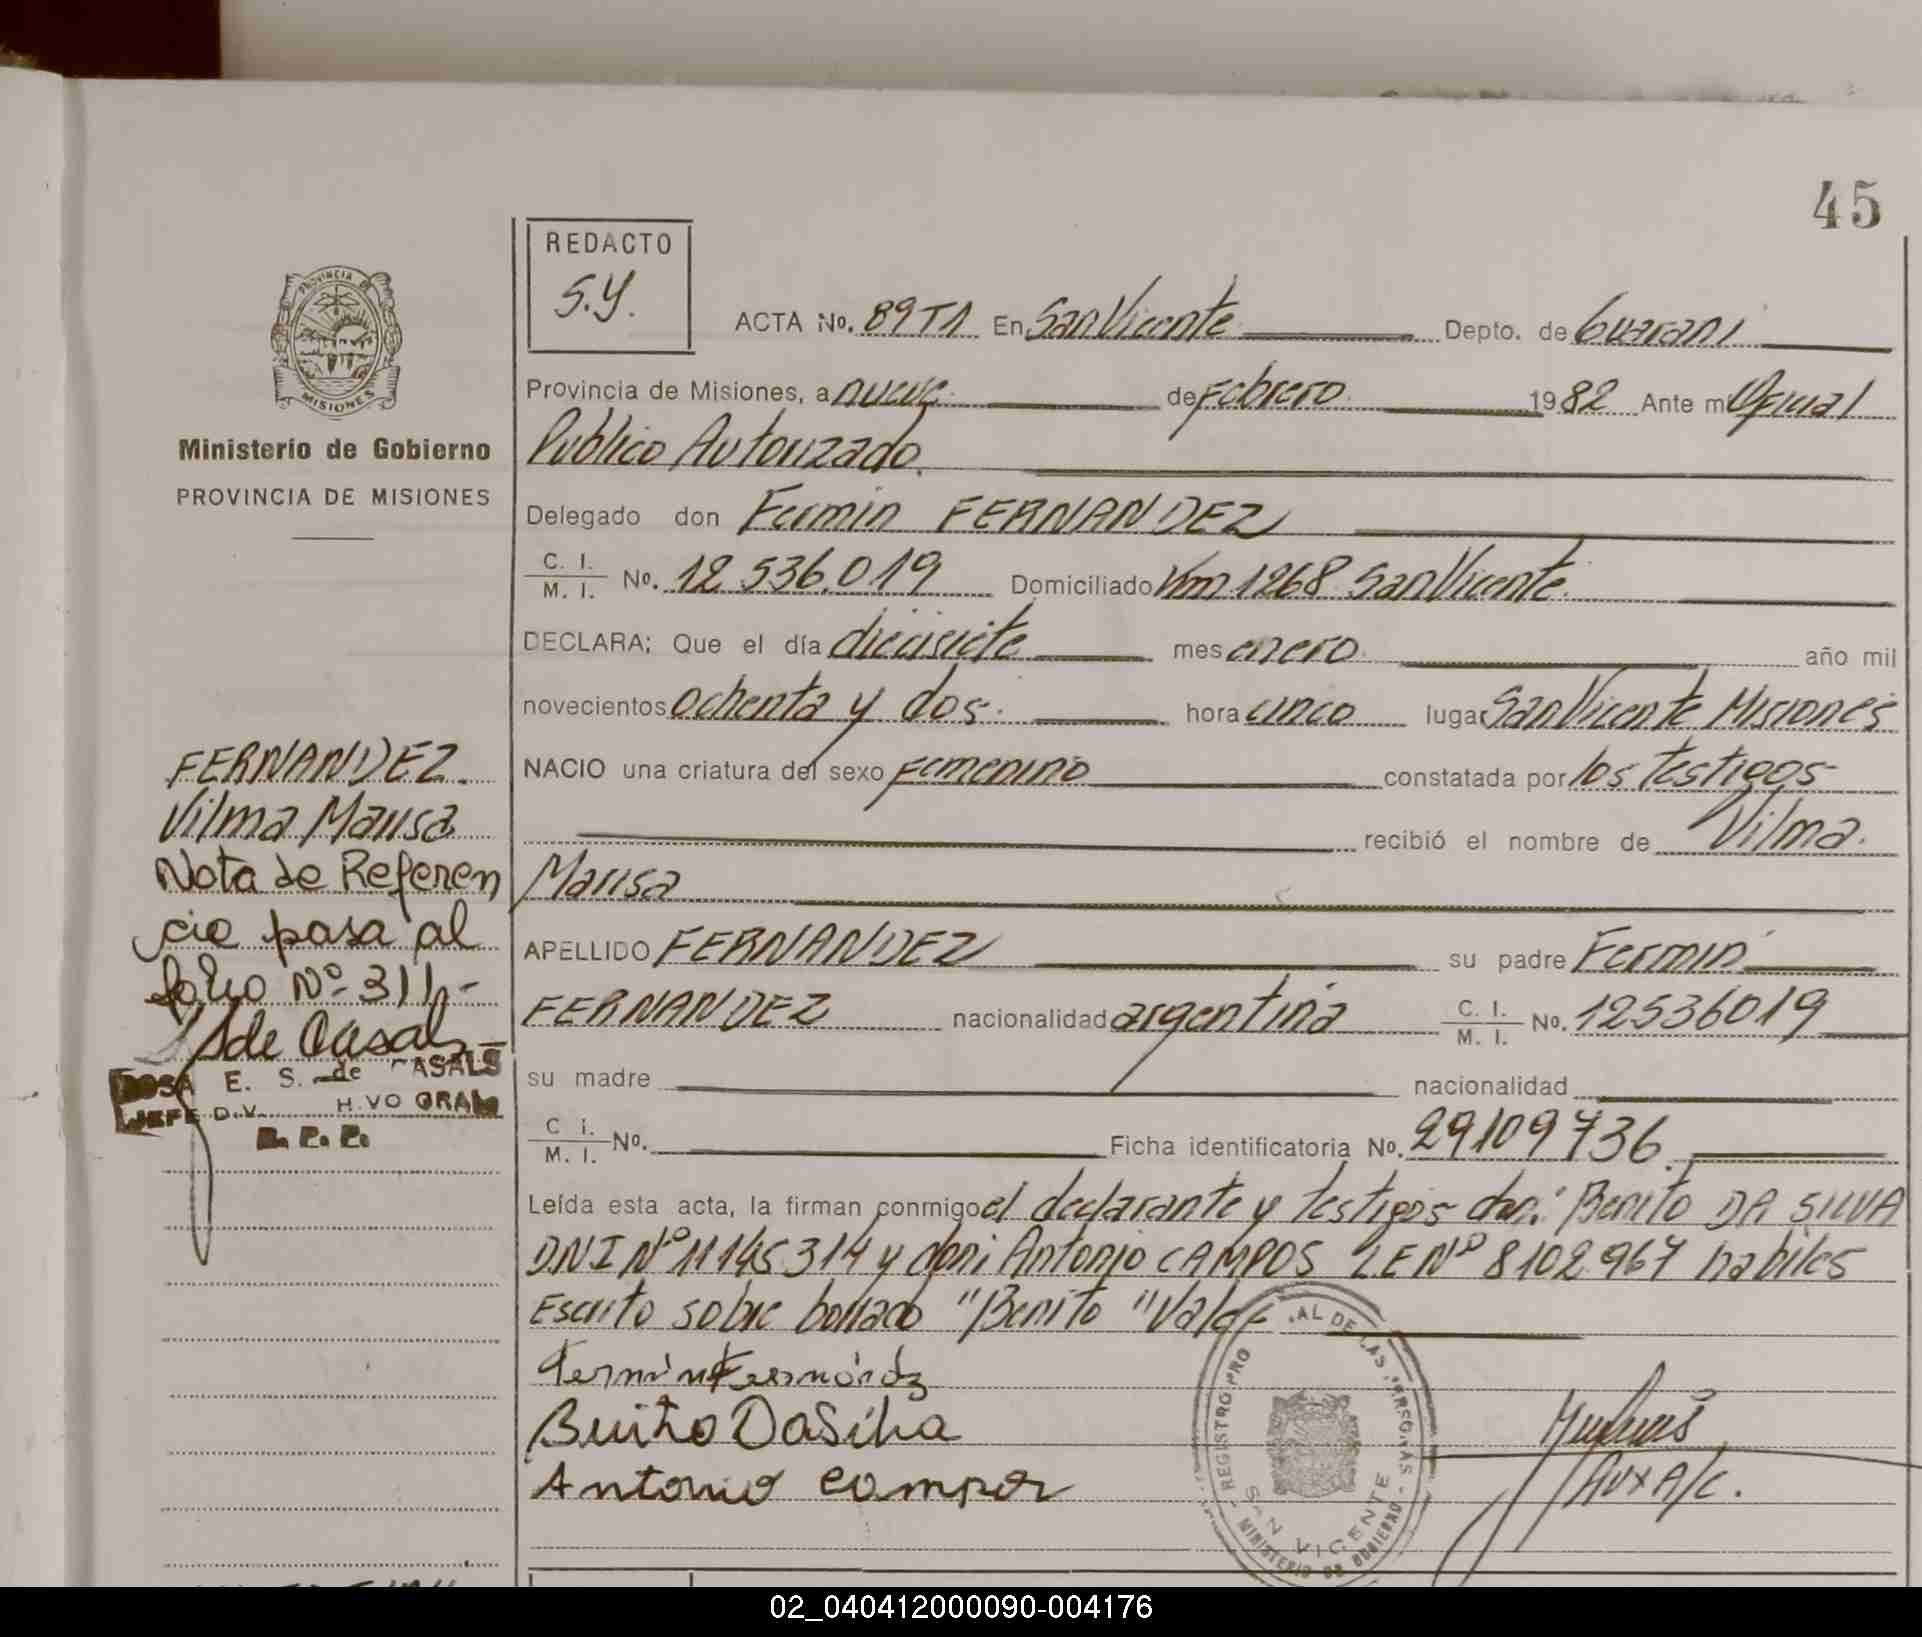 45
REDACTO
S.Y.
ACTA No. 89 T1 En San Vicente Depto. de Guarani
PROVINCIA DE
MISIONES
Provincia de Misiones, a nueve de Febrero 1982 Ante mi Oficial
Ministerio de Gobierno
Publico Autorizado.
PROVINCIA DE MISIONES
Delegado don Fermin FERNANDEZ
C. I.
M. I. No. 12.536.019 Domiciliado Km 1268 San Vicente.
DECLARA; Que el día diecisiete mes enero año mil
novecientos ochenta y dos hora cinco lugar San Vicente Misiones
FERNANDEZ.
NACIO una criatura del sexo femenino constatada por los testigos
Vilma Marisa
recibió el nombre de Vilma
Nota de Referen
Marisa
cia pasa al
APELLIDO FERNANDEZ su padre Fermin
folio Nº 311-
FERNANDEZ nacionalidad argentina C. I.
M. I. No. 12536019
S de Casals
ROSA E. S. de CASALS
su madre nacionalidad
JEFE DIV. H. VO GRAL
R. P. P.
C I.
M. I. No. Ficha identificatoria No. 29109736.
Leída esta acta, la firman conmigo el declarante y testigos don: Benito DA SILVA
DNI Nº 11145314 y don: Antonio CAMPOS LE Nº 8102967 habiles
Escrito sobre borrado "Benito" Vale
Fermin Fernández
Benito DaSilva
Antonio Campos
Aux A/C.
REGISTRO PRO AL DE LAS PERSONAS
SAN VICENTE
MINISTERIO DE GOBIERNO
02_040412000090-004176